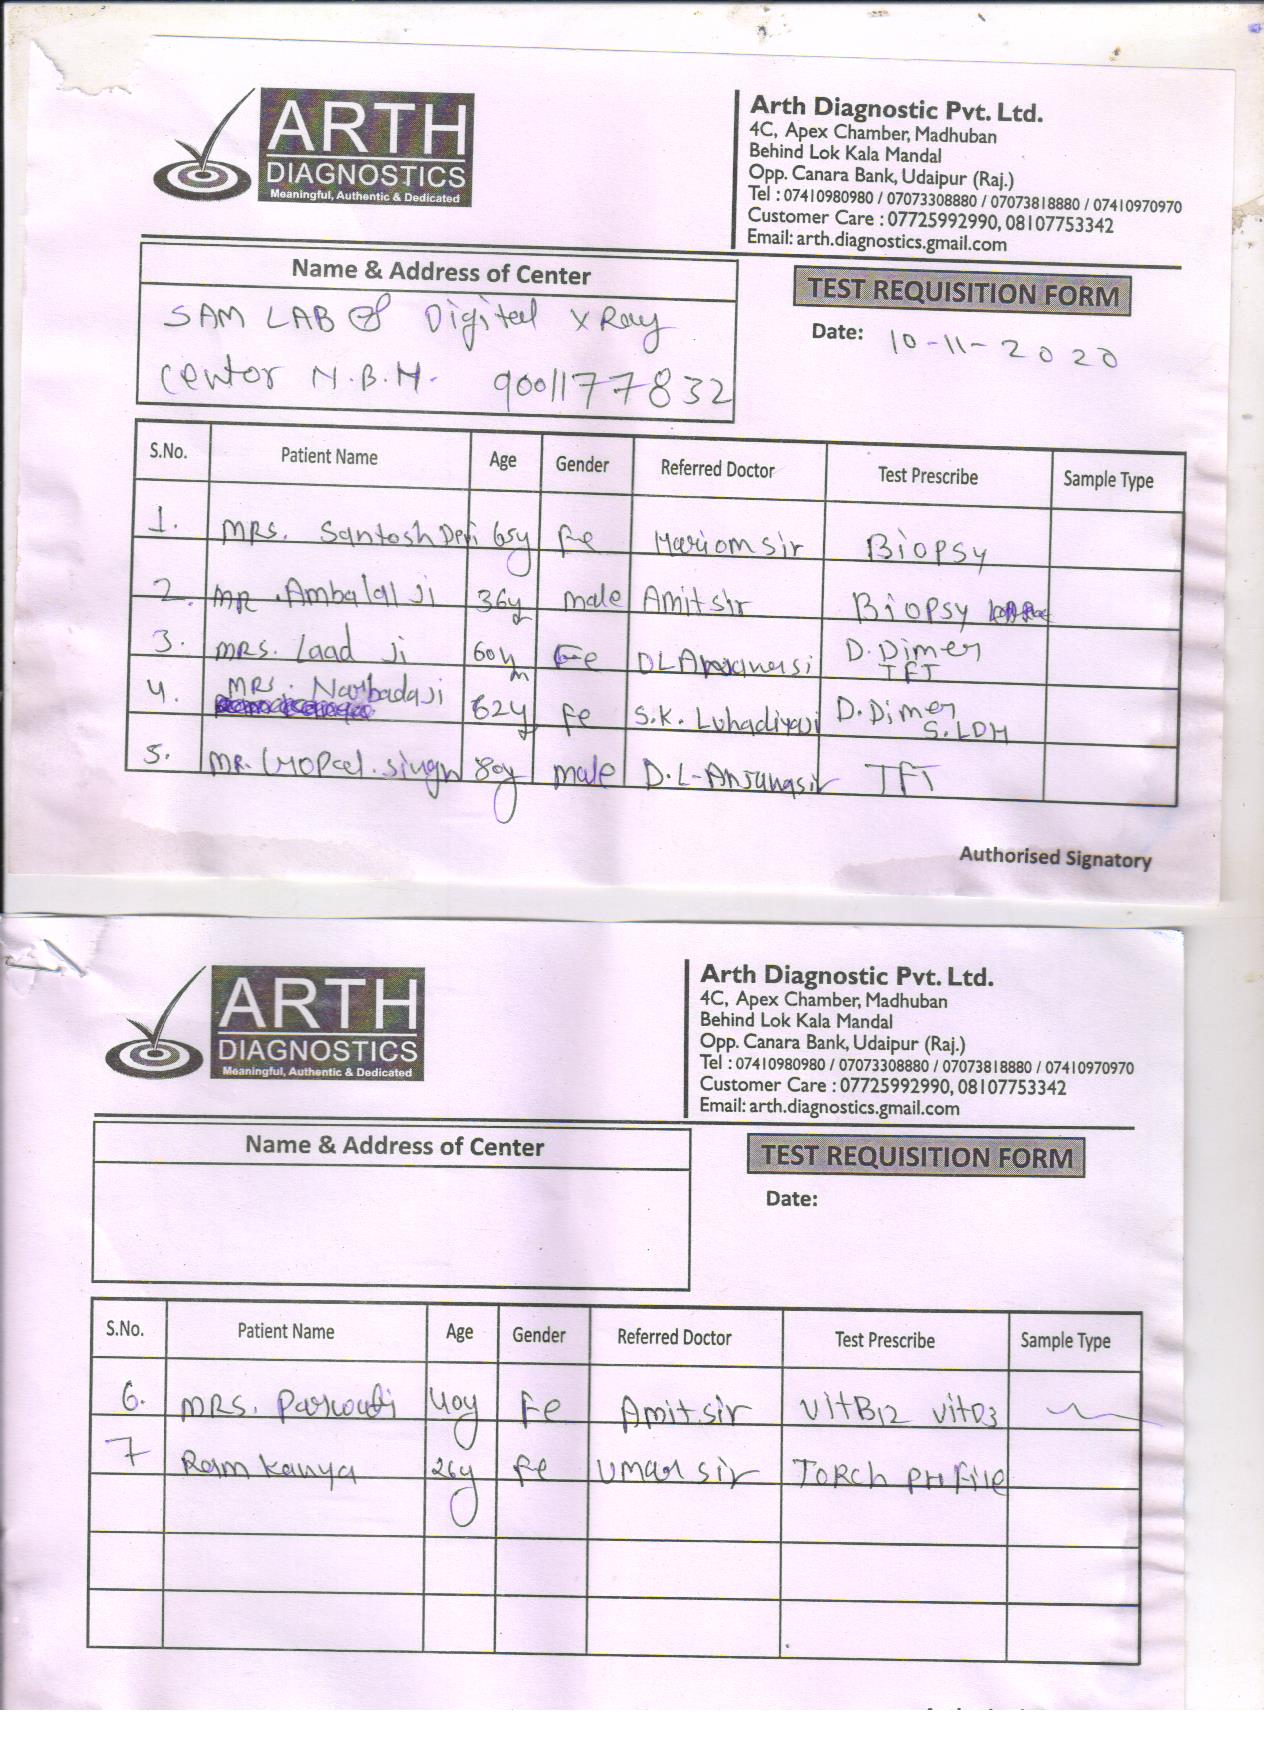 ARTH
DIAGNOSTICS
Meaningful, Authentic & Dedicated
Arth Diagnostic Pvt. Ltd.
4C, Apex Chamber, Madhuban
Behind Lok Kala Mandal
Opp. Canara Bank, Udaipur (Raj.)
Tel : 07410980980 / 07073308880 / 07073818880 / 07410970970
Customer Care : 07725992990, 08107753342
Email: arth.diagnostics.gmail.com
Name & Address of Center
SAM LAB & Digital X Ray
Centor N.B.H. 9001177832
TEST REQUISITION FORM
Date: 10-11-2020
S.No. Patient Name Age Gender Referred Doctor Test Prescribe Sample Type
1. MRS. Santosh Devi 65y Fe Hariom sir Biopsy
2. MR. Ambalal Ji 36y male Amit sir Biopsy
3. MRS. Laad Ji 60y Fe D.Dimer TFT
4. MRS. Narbadaji 62y Fe S.K. Luhadiyaji D.Dimer S.LDH
5. MR. Gopal. Singh 80y male D.L-Anjanasir TFT
Authorised Signatory
ARTH
DIAGNOSTICS
Meaningful, Authentic & Dedicated
Arth Diagnostic Pvt. Ltd.
4C, Apex Chamber, Madhuban
Behind Lok Kala Mandal
Opp. Canara Bank, Udaipur (Raj.)
Tel : 07410980980 / 07073308880 / 07073818880 / 07410970970
Customer Care : 07725992990, 08107753342
Email: arth.diagnostics.gmail.com
Name & Address of Center
TEST REQUISITION FORM
Date:
S.No. Patient Name Age Gender Referred Doctor Test Prescribe Sample Type
6. MRS. Parwati 40y Fe Amit sir VitB12 VitD3
7 Ram Kanya 26y Fe Umar sir TORCH Profile